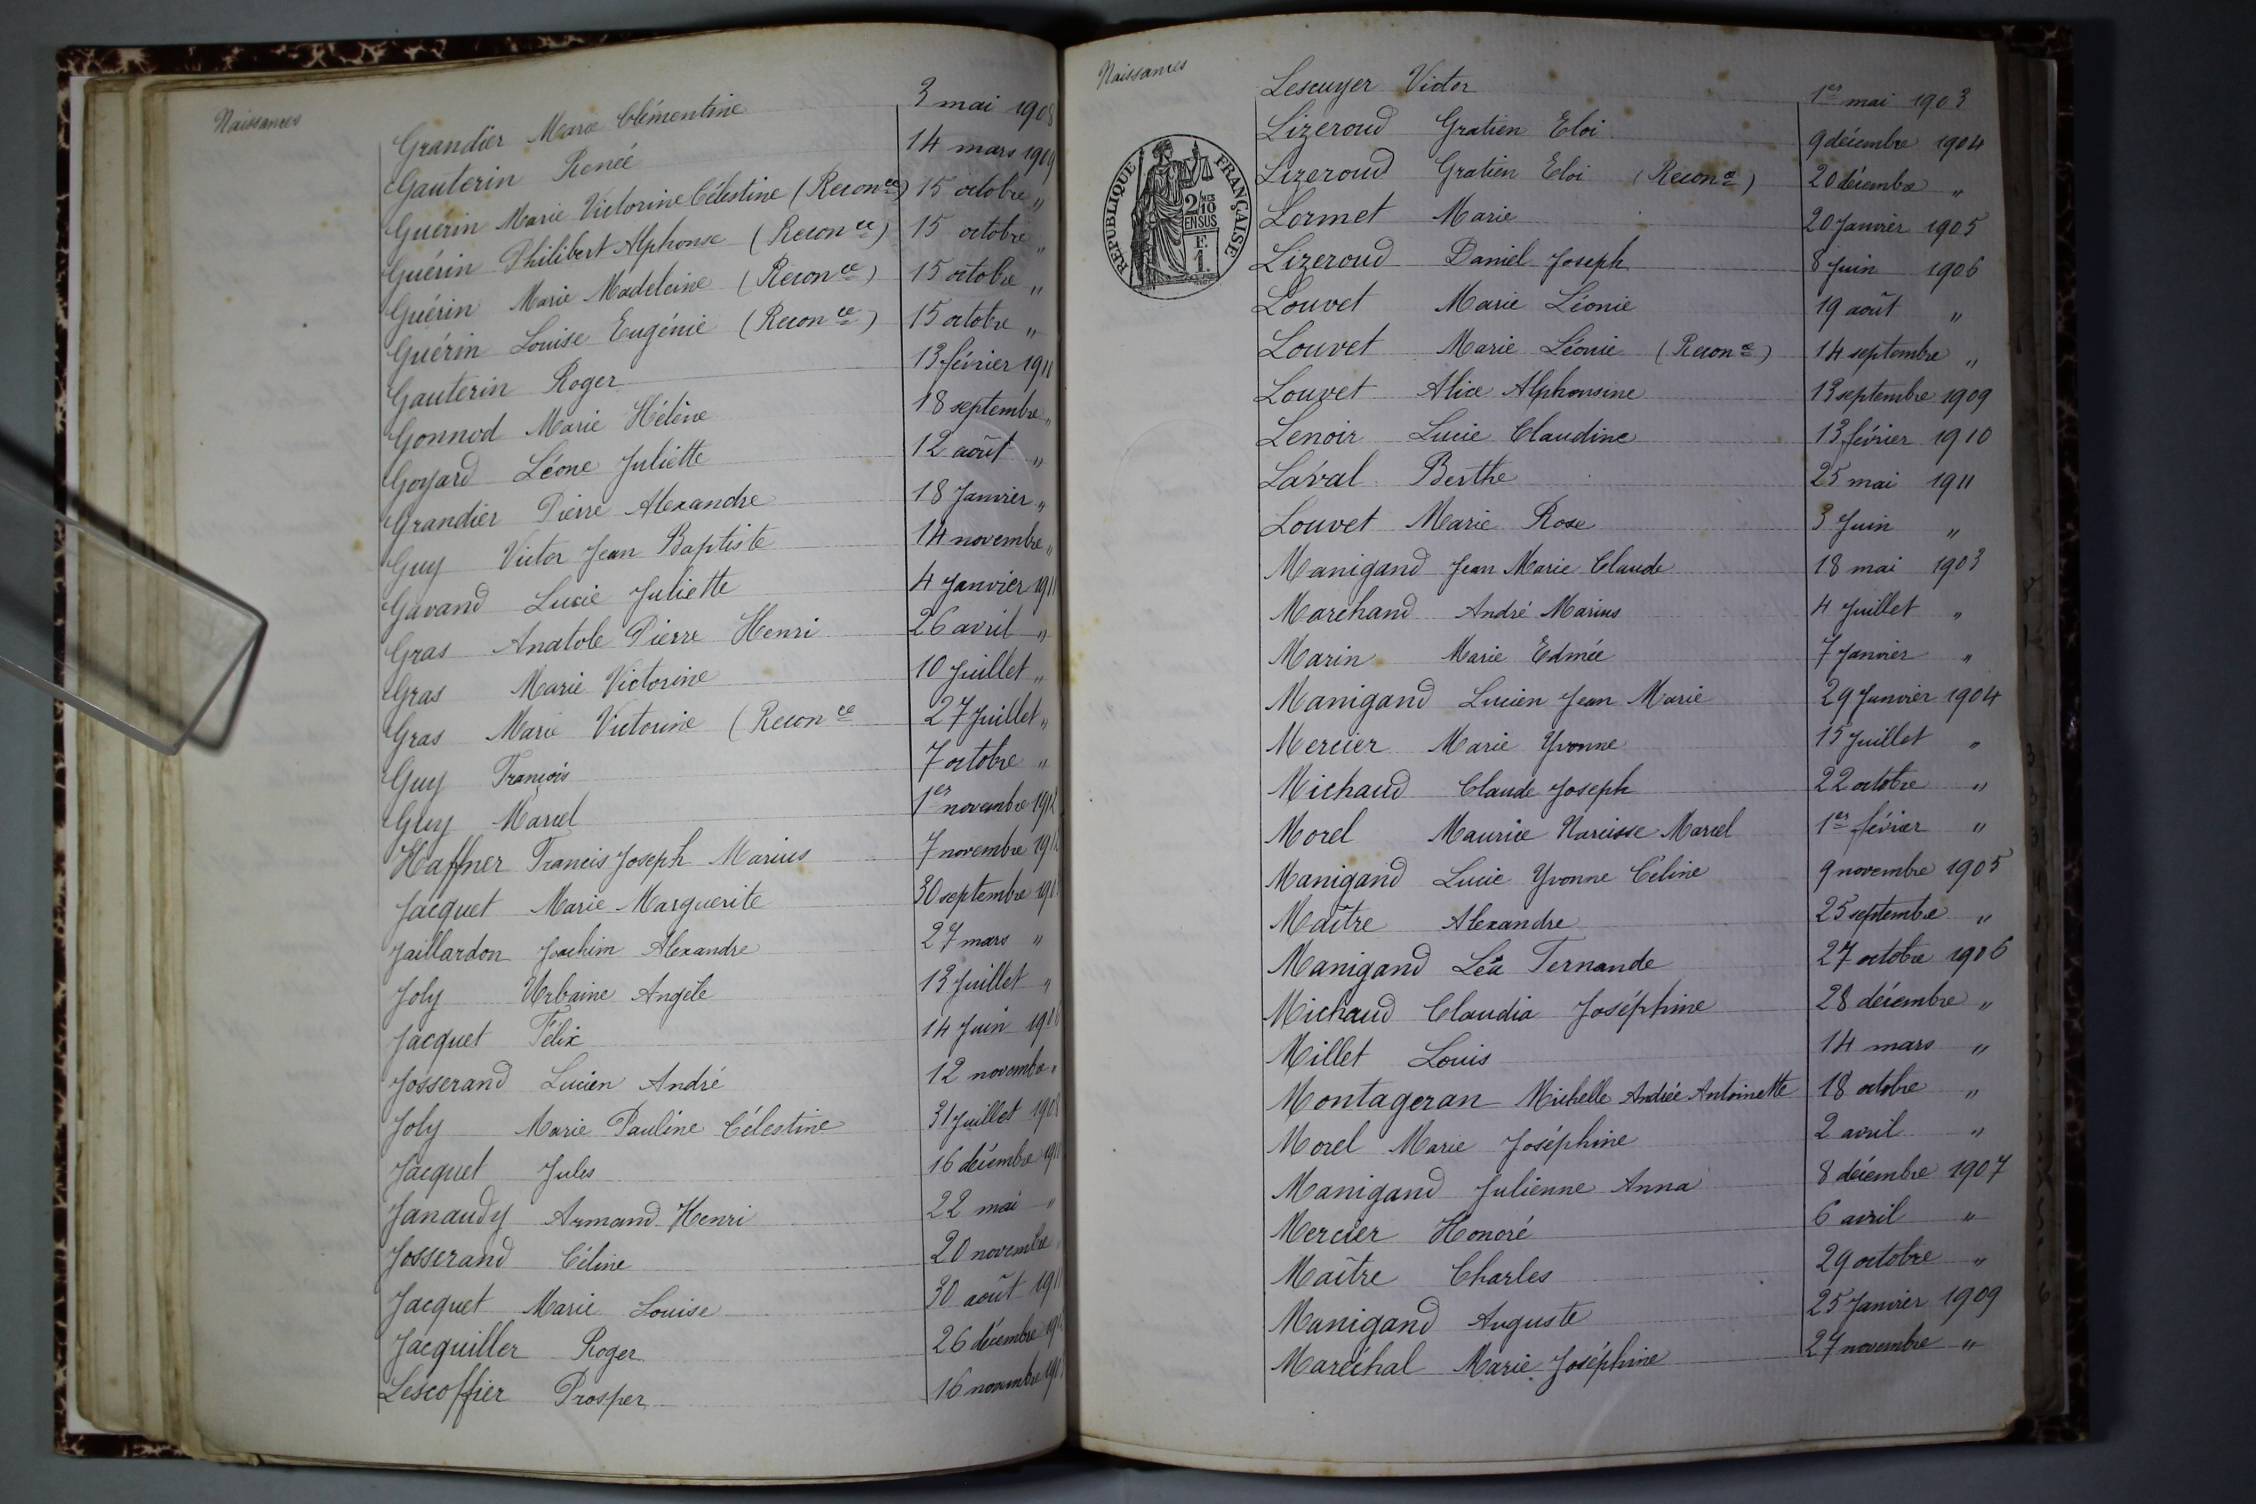 Naissances
Grandier Marie Clémentine 3 mai 1908
Gauterin Renée 14 mars 1909
Guérin Marie Victorine Célestine (Reconce) 15 octobre "
Guérin Philibert Alphonse (Reconce) 15 octobre "
Guérin Marie Madeleine (Reconce) 15 octobre "
Guérin Louise Eugénie (Reconce) 15 octobre "
Gauterin Roger 13 février
Gonnod Marie Hélène 18 septembre "
Goyard Léone Juliette 12 août "
Grandier Pierre Alexandre 18 Janvier "
Guy Victor Jean Baptiste 14 novembre "
Gavand Lucie Juliette 4 Janvier
Gras Anatole Pierre Henri 26 avril "
Gras Marie Victorine 10 Juillet "
Gras Marie Victorine (Reconce 27 Juillet "
Guy François 7 octobre "
Guy Marcel 1er novembre
Haffner Francis Joseph Marius 7 novembre
Jacquet Marie Marguerite 30 septembre
Jaillardon Joachim Alexandre 27 mars "
Joly Urbaine Angèle 13 Juillet "
Jacquet Félix 14 Juin
Josserand Lucien André 12 novembre "
Joly Marie Pauline Célestine 31 Juillet 1908
Jacquet Jules 16 décembre
Janaudy Armand Henri 22 mai "
Josserand Céline 20 novembre
Jacquet Marie Louise 30 août
Jacquiller Roger 26 décembre
Lescoffier Prosper 16 novembre
Naissances
RÉPUBLIQUE FRANÇAISE
2/10 MES
EN SUS
F.
1.
Lescuyer Victor 1er mai 1903
Lizeroud Gratien Eloi 9 décembre 1904
Lizeroud Gratien Eloi (Reconce) 20 décembre "
Lormet Marie 20 Janvier 1905
Lizeroud Daniel Joseph 8 Juin 1906
Louvet Marie Léonie 19 août "
Louvet Marie Léonie (Reconce) 14 septembre "
Louvet Alice Alphonsine 13 septembre 1909
Lenoir Lucie Claudine 13 février 1910
Laval Berthe 25 mai 1911
Louvet Marie Rose 3 Juin "
Manigand Jean Marie Claude 18 mai 1903
Marchand André Marius 4 Juillet "
Marin Marie Edmée 7 Janvier "
Manigand Lucien Jean Marie 29 Janvier 1904
Mercier Marie Yvonne 15 Juillet "
Michaud Claude Joseph 22 octobre "
Morel Maurice Narcisse Marcel 1er février "
Manigand Lucie Yvonne Céline 9 novembre 1905
Maître Alexandre 25 septembre "
Manigand Léa Fernande 27 octobre 1906
Michaud Claudia Joséphine 28 décembre "
Millet Louis 14 mars "
Montageran Michelle Andrée Antoinette 18 octobre "
Morel Marie Joséphine 2 avril "
Manigand Julienne Anna 8 décembre 1907
Mercier Honoré 6 avril "
Maître Charles 29 octobre "
Manigand Auguste 25 Janvier 1909
Maréchal Marie Joséphine 27 novembre "